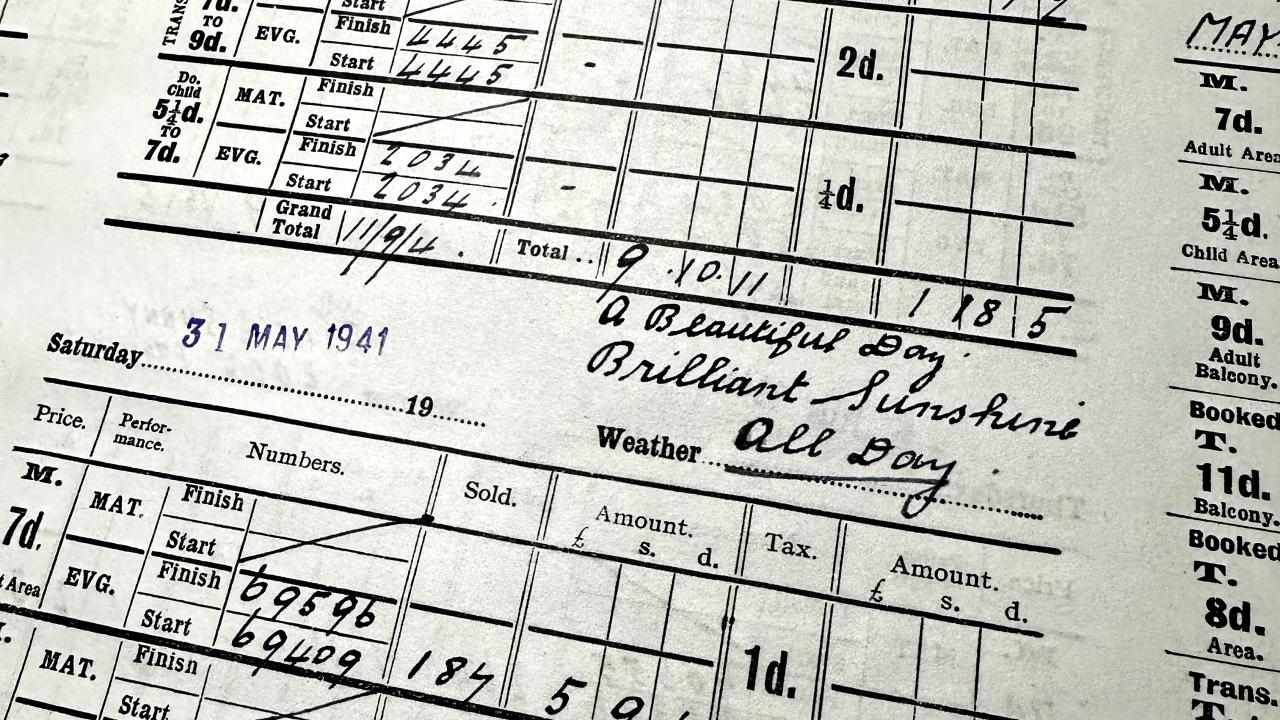 7d.
Start
TRANS
TO
9d.
EVG.
Finish
4445
-
2d.
Start
4445
Do.
Child
5¼d.
TO
7d.
MAT.
Finish
Start
EVG.
Finish
2034
-
¼d.
Start
2034
Grand
Total
11/9/4.
Total..
9.10.11
1 18 5
A Beautiful Day.
Brilliant Sunshine
Saturday
31 MAY 1941
19
Weather
All Day.
Price.
Perfor-
mance.
Numbers.
Sold.
Amount.
£ s. d.
Tax.
Amount.
£ s. d.
M.
7d.
Area
MAT.
Finish
Start
EVG.
Finish
69596
Start
69409
184
5 9
1d.
MAT.
Finish
Start
MAY
M.
7d.
Adult Area
M.
5¼d.
Child Area
M.
9d.
Adult
Balcony.
Booked
T.
11d.
Balcony.
Booked
T.
8d.
Area.
Trans.